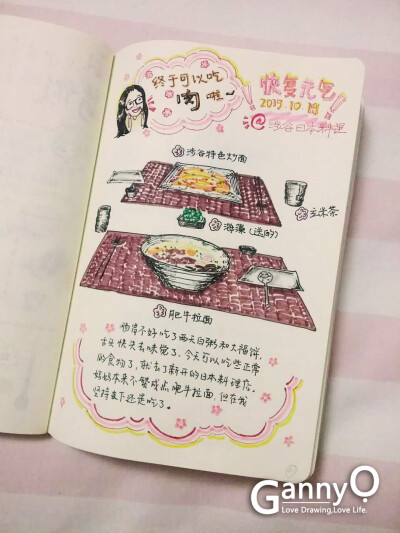 终于可以吃
肉啦~
恢复元气!
2019.10.19
@涉谷日本料理
涉谷特色炒面
玄米茶
海藻(送的)
肥牛拉面
舌头快失去味觉了,今天可以吃些正常
的食物了,就去了新开的日本料理店。
妈妈本来不赞成点肥牛拉面,但在我
坚持之下还是吃了。
GannyQ
Love Drawing,Love Life.